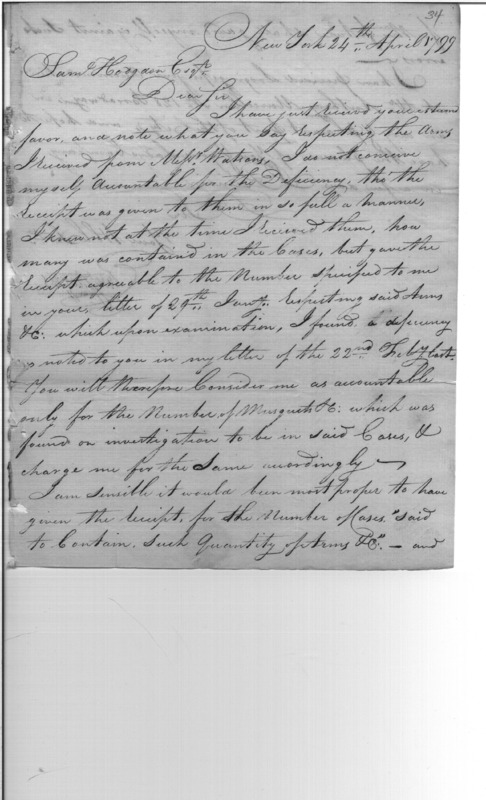 34
New York 24th April 1799
Saml Hodgdon Esqr
Dear Sir
I have just received your esteem
favor, and note what you say respecting the Arms
I received from Messrs Watsons, I do not conceive
myself Accountable for the Deficiency, tho the
receipt was given to them in so full a manner,
I knew not at the time I received them, how
many was contained in the Cases, but gave the
receipt agreable to the Number specified to me
in your letter of 29th Jany. respecting said Arms
&c: which upon examination, I found a deficiency
noted to you in my letter of the 22nd Feby last.
You will therefore Consider me as accountable
only for the Number of Musquets &c: which was
found on investigation to be in said Cases, &
charge me for the Same accordingly
I am sensible it would been most proper to have
given the receipt, for the Number of Cases, "said
to Contain, such Quantity of Arms &c". — and